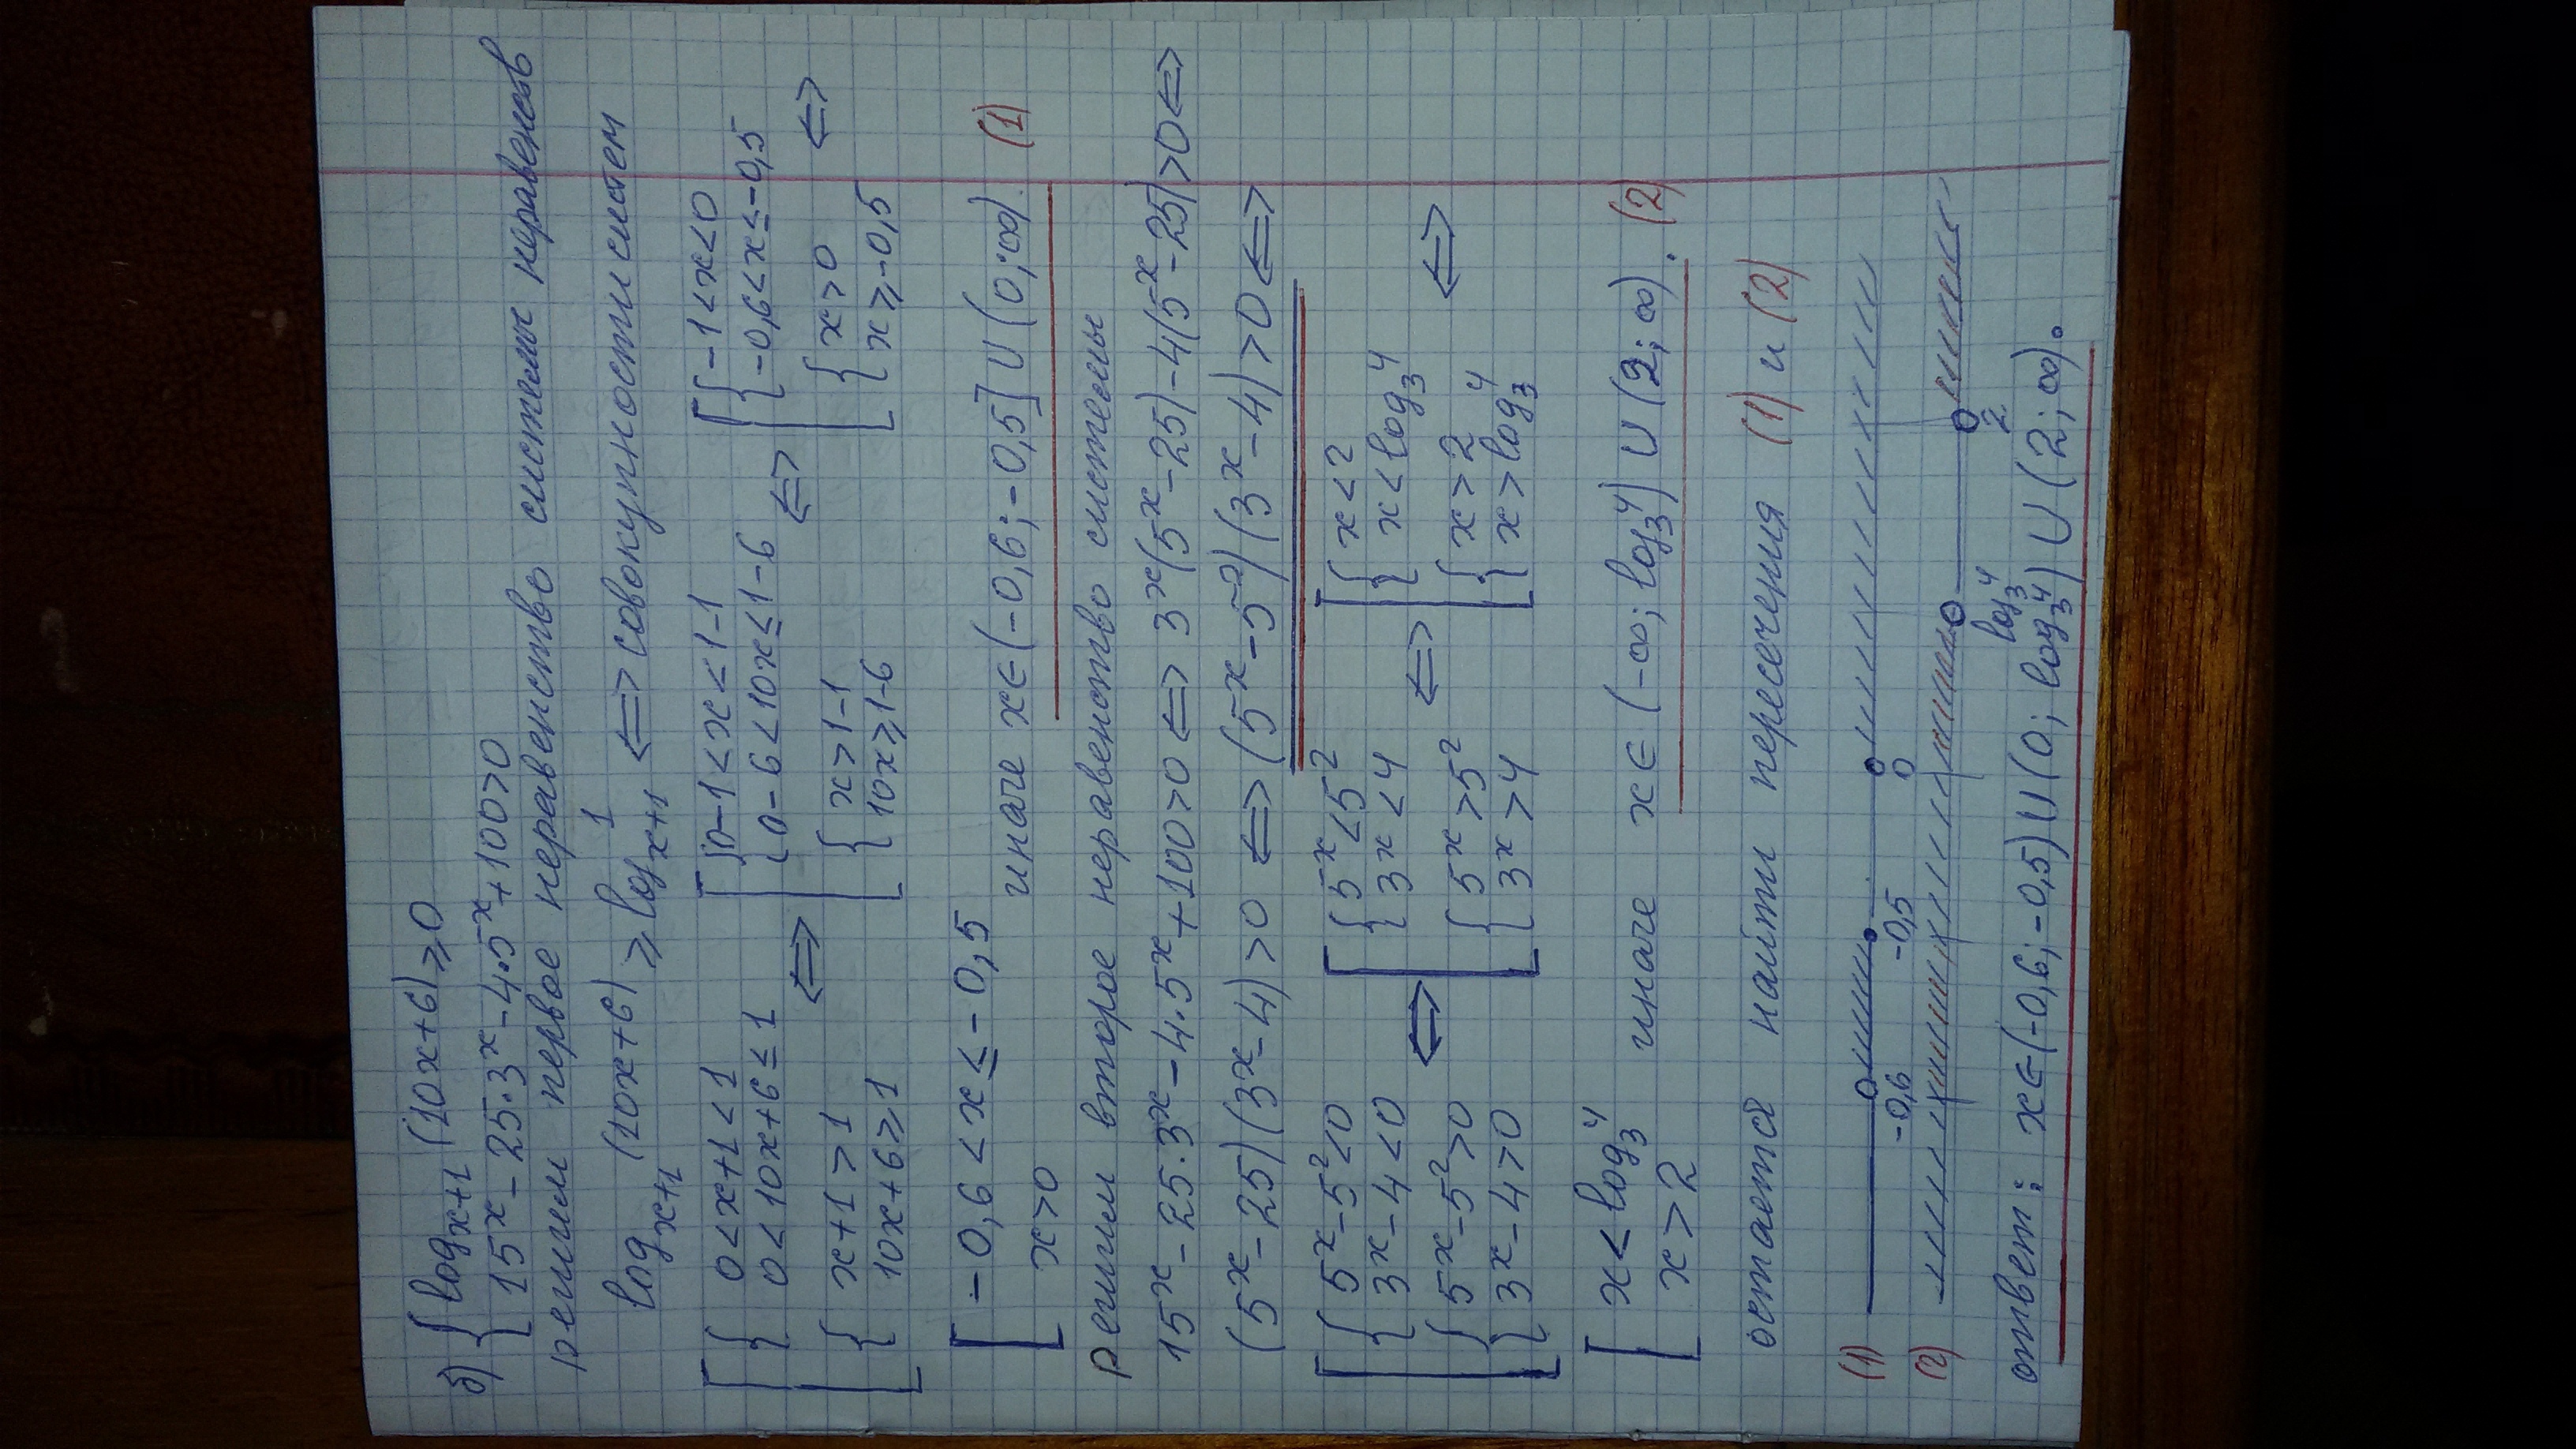 б) { log_{x+1} (10x+6) ⩾ 0
{ 15^x - 25·3^x - 4·5^x + 100 > 0
решим первое неравенство системы неравенств
log_{x+1} (10x+6) ⩾ log_{x+1} 1 ⟺ совокупности систем
[ { 0 < x+1 < 1 [ { 0-1 < x < 1-1 [ { -1 < x < 0
{ 0 < 10x+6 ≤ 1 ⟺ { 0-6 < 10x ≤ 1-6 ⟺ { -0,6 < x ≤ -0,5 ⟺
{ x+1 > 1 { x > 1-1 { x > 0
[ { 10x+6 ⩾ 1 [ { 10x ⩾ 1-6 [ { x ⩾ -0,5
[ -0,6 < x ≤ -0,5
[ x > 0 иначе x ∈ (-0,6; -0,5] ∪ (0; ∞). (1)
Решим второе неравенство системы
15^x - 25·3^x - 4·5^x + 100 > 0 ⟺ 3^x(5^x - 25) - 4(5^x - 25) > 0 ⟺
(5^x - 25)(3^x - 4) > 0 ⟺ (5^x - 5^2)(3^x - 4) > 0 ⟺
[ { 5^x - 5^2 < 0 [ { 5^x < 5^2 [ { x < 2
{ 3^x - 4 < 0 ⟺ { 3^x < 4 ⟺ { x < log_3 4 ⟺
{ 5^x - 5^2 > 0 { 5^x > 5^2 { x > 2
[ { 3^x - 4 > 0 [ { 3^x > 4 [ { x > log_3 4
[ x < log_3 4
[ x > 2 иначе x ∈ (-∞; log_3 4) ∪ (2; ∞). (2)
остается найти пересечения (1) и (2)
(1) -0,6 -0,5 0
(2) log_3 4 2
ответ: x ∈ (-0,6; -0,5) ∪ (0; log_3 4) ∪ (2; ∞).